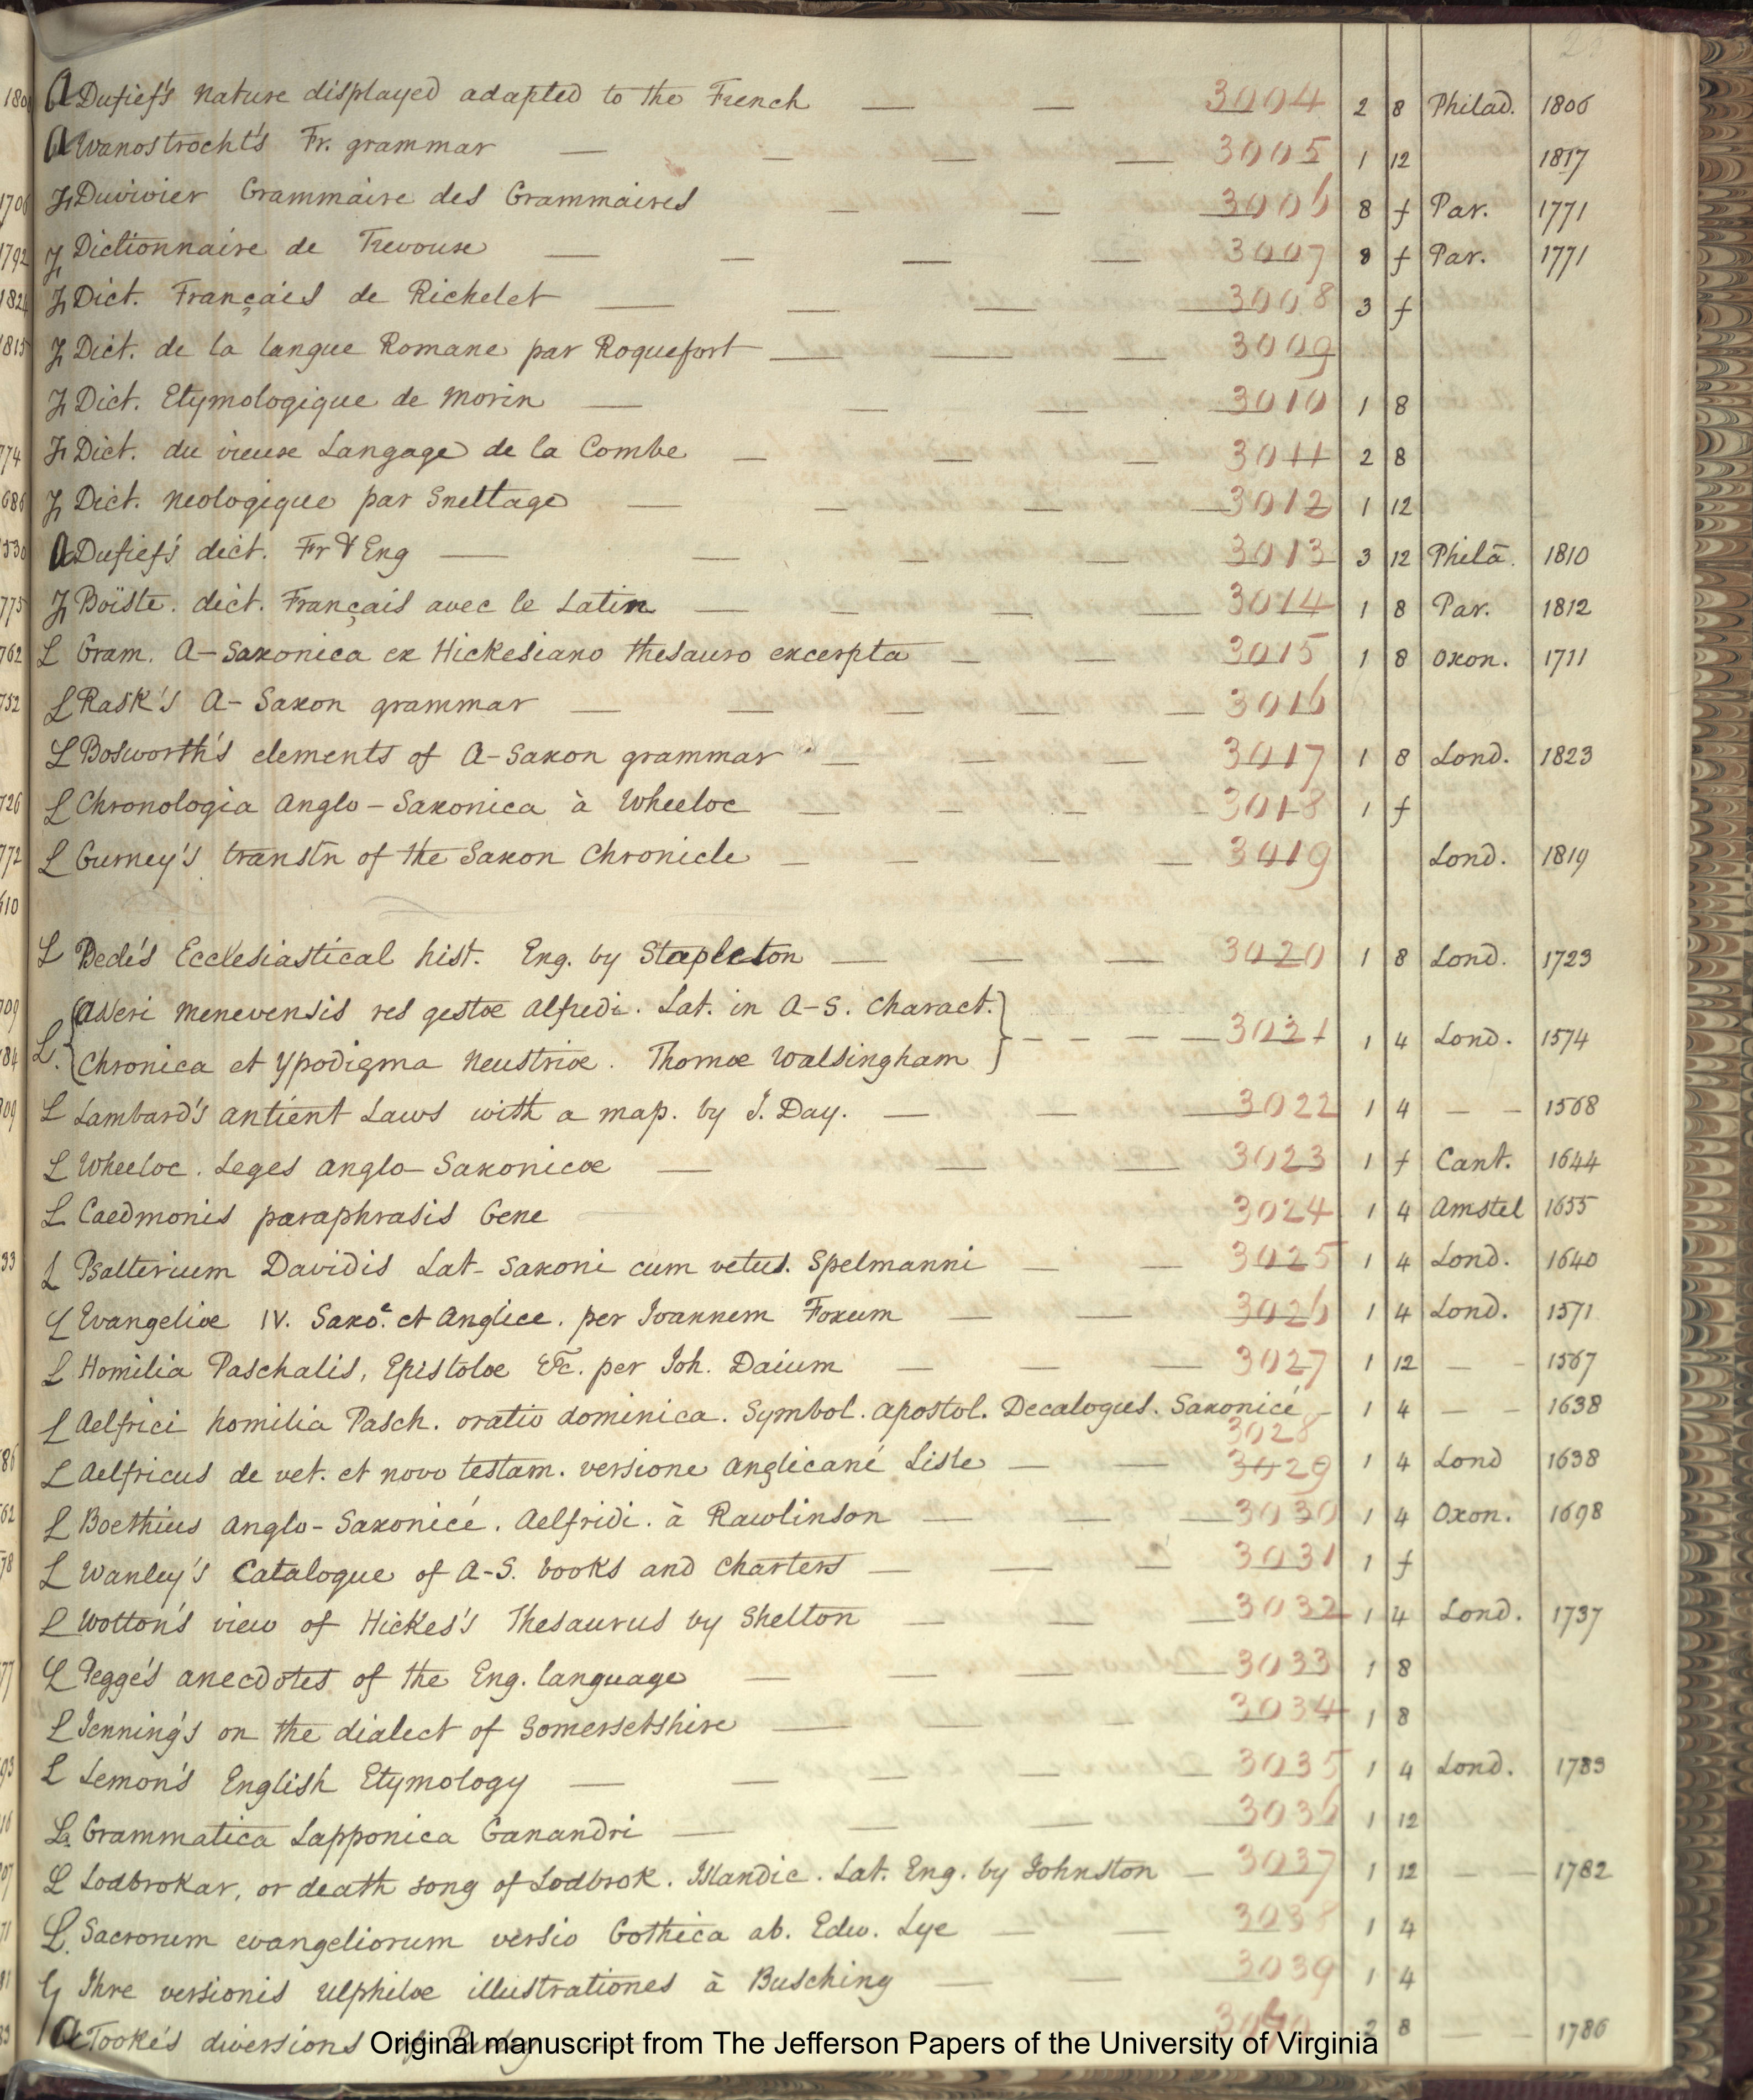 25
A Dufief's nature displayed adapted to the French — — 3004 2 8 Philad. 1806
A Wanostrocht's Fr. grammar — — — — 3005 1 12 1817
Duvivier Grammaire des Grammaires — — — 3006 8 f Par. 1771
Dictionnaire de Trevoux — — — — 3007 8 f Par. 1771
Dict. Français de Richelet — — — — 3008 3 f
Dict. de la langue Romane par Roquefort — — — 3009
Dict. Etymologique de Morin — — — — 3010 1 8
Dict. du vieux Langage de la Combe — — — 3011 2 8
Dict. neologique par Snettage — — — — 3012 1 12
A Dufief's dict. Fr & Eng — — — — 3013 3 12 Phila. 1810
Boïste. dict. Français avec le Latin — — — — 3014 1 8 Par. 1812
L Gram. A-Saxonica ex Hickesiano thesauro excerpta — — 3015 1 8 Oxon. 1711
L Rask's A-Saxon grammar — — — — — 3016
L Bosworth's elements of A-Saxon grammar — — — 3017 1 8 Lond. 1823
L Chronologia Anglo-Saxonica à Wheeloc — — — — 3018 1 f
L Gurney's transln of the Saxon Chronicle — — — — 3019 Lond. 1819
L Bede's Ecclesiastical hist. Eng. by Stapleton — — — 3020 1 8 Lond. 1723
Asseri Menevensis res gestae Alfredi. Lat. in A-S. Charact.
L. Chronica et Ypodigma Neustriae. Thomae Walsingham — — — — 3021 1 4 Lond. 1574
L Lambard's antient Laws with a map. by J. Day. — — — 3022 1 4 — — 1568
L Wheeloc. Leges Anglo-Saxonicae — — — 3023 1 f Cant. 1644
L Caedmonis paraphrasis Gene 3024 1 4 Amstel 1655
L Psalterium Davidis Lat-Saxoni cum vetus. Spelmanni — — 3025 1 4 Lond. 1640
L Evangeliae IV. Saxo.e et Anglice. per Ioannem Foxum — — — 3026 1 4 Lond. 1571
L Homilia Paschalis, Epistolae &c. per Joh. Daium — — — 3027 1 12 — — 1567
L Aelfrici homilia Pasch. oratio dominica. Symbol. apostol. Decalogus. Saxonicé — 3028 1 4 — — 1638
L Aelfricus de vet. et novo testam. versione Anglicané Lisle — — 3029 1 4 Lond 1638
L Boethius Anglo-Saxonicé. Aelfridi. à Rawlinson — — — 3030 1 4 Oxon. 1698
L Wanley's Catalogue of A-S. books and Charters — — — 3031 1 f
L Wotton's view of Hickes's Thesaurus by Shelton — — — 3032 1 4 Lond. 1737
L Pegge's anecdotes of the Eng. language — — — — 3033 1 8
L Jenning's on the dialect of Somersetshire — — — 3034 1 8
L Lemon's English Etymology — — — — — 3035 1 4 Lond. 1783
L. Grammatica Lapponica Ganandri — — — — 3036 1 12
L Lodbrokar, or death song of Lodbrok. Islandic. Lat. Eng. by Johnston — 3037 1 12 — — 1782
L. Sacrorum evangeliorum versio Gothica ab. Edw. Lye — — 3038 1 4
Ihre versionis Ulphilae illustrationes à Busching — — — 3039 1 4
A Tooke's diversions of Purley 3040 2 8 — — 1786
Original manuscript from The Jefferson Papers of the University of Virginia